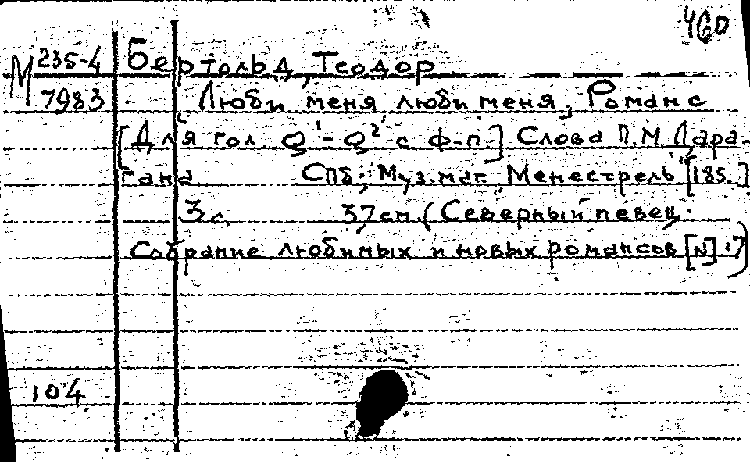 460
М 235-4 Бертольд, Теодор
7983 Люби меня люби меня, Романс
[Для гол. Q¹-Q² с ф-п] Слова П.М Дара-
гана СПБ; Муз.маг. „Менестрель" [185.]
3 с. 37 см (Северный певец.
Собрание любимых и новых романсов [N] 17)
104